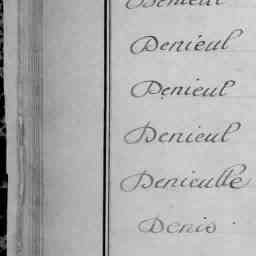 Denieul
Deniéul
Denieul
Denieul
Denieulle
Denis